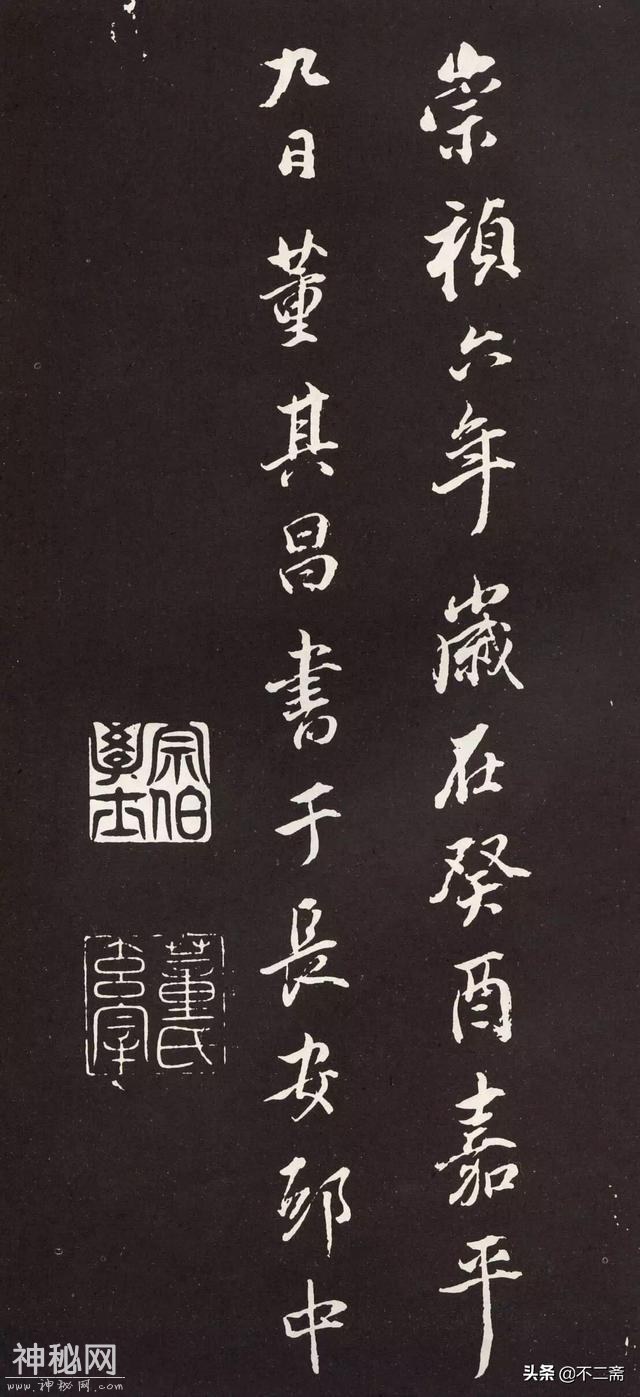 崇禎六年歲在癸酉嘉平
九日董其昌書于長安邸中
宗伯學士
董氏玄宰
神秘网
www.神秘网.com
头条@不二斋